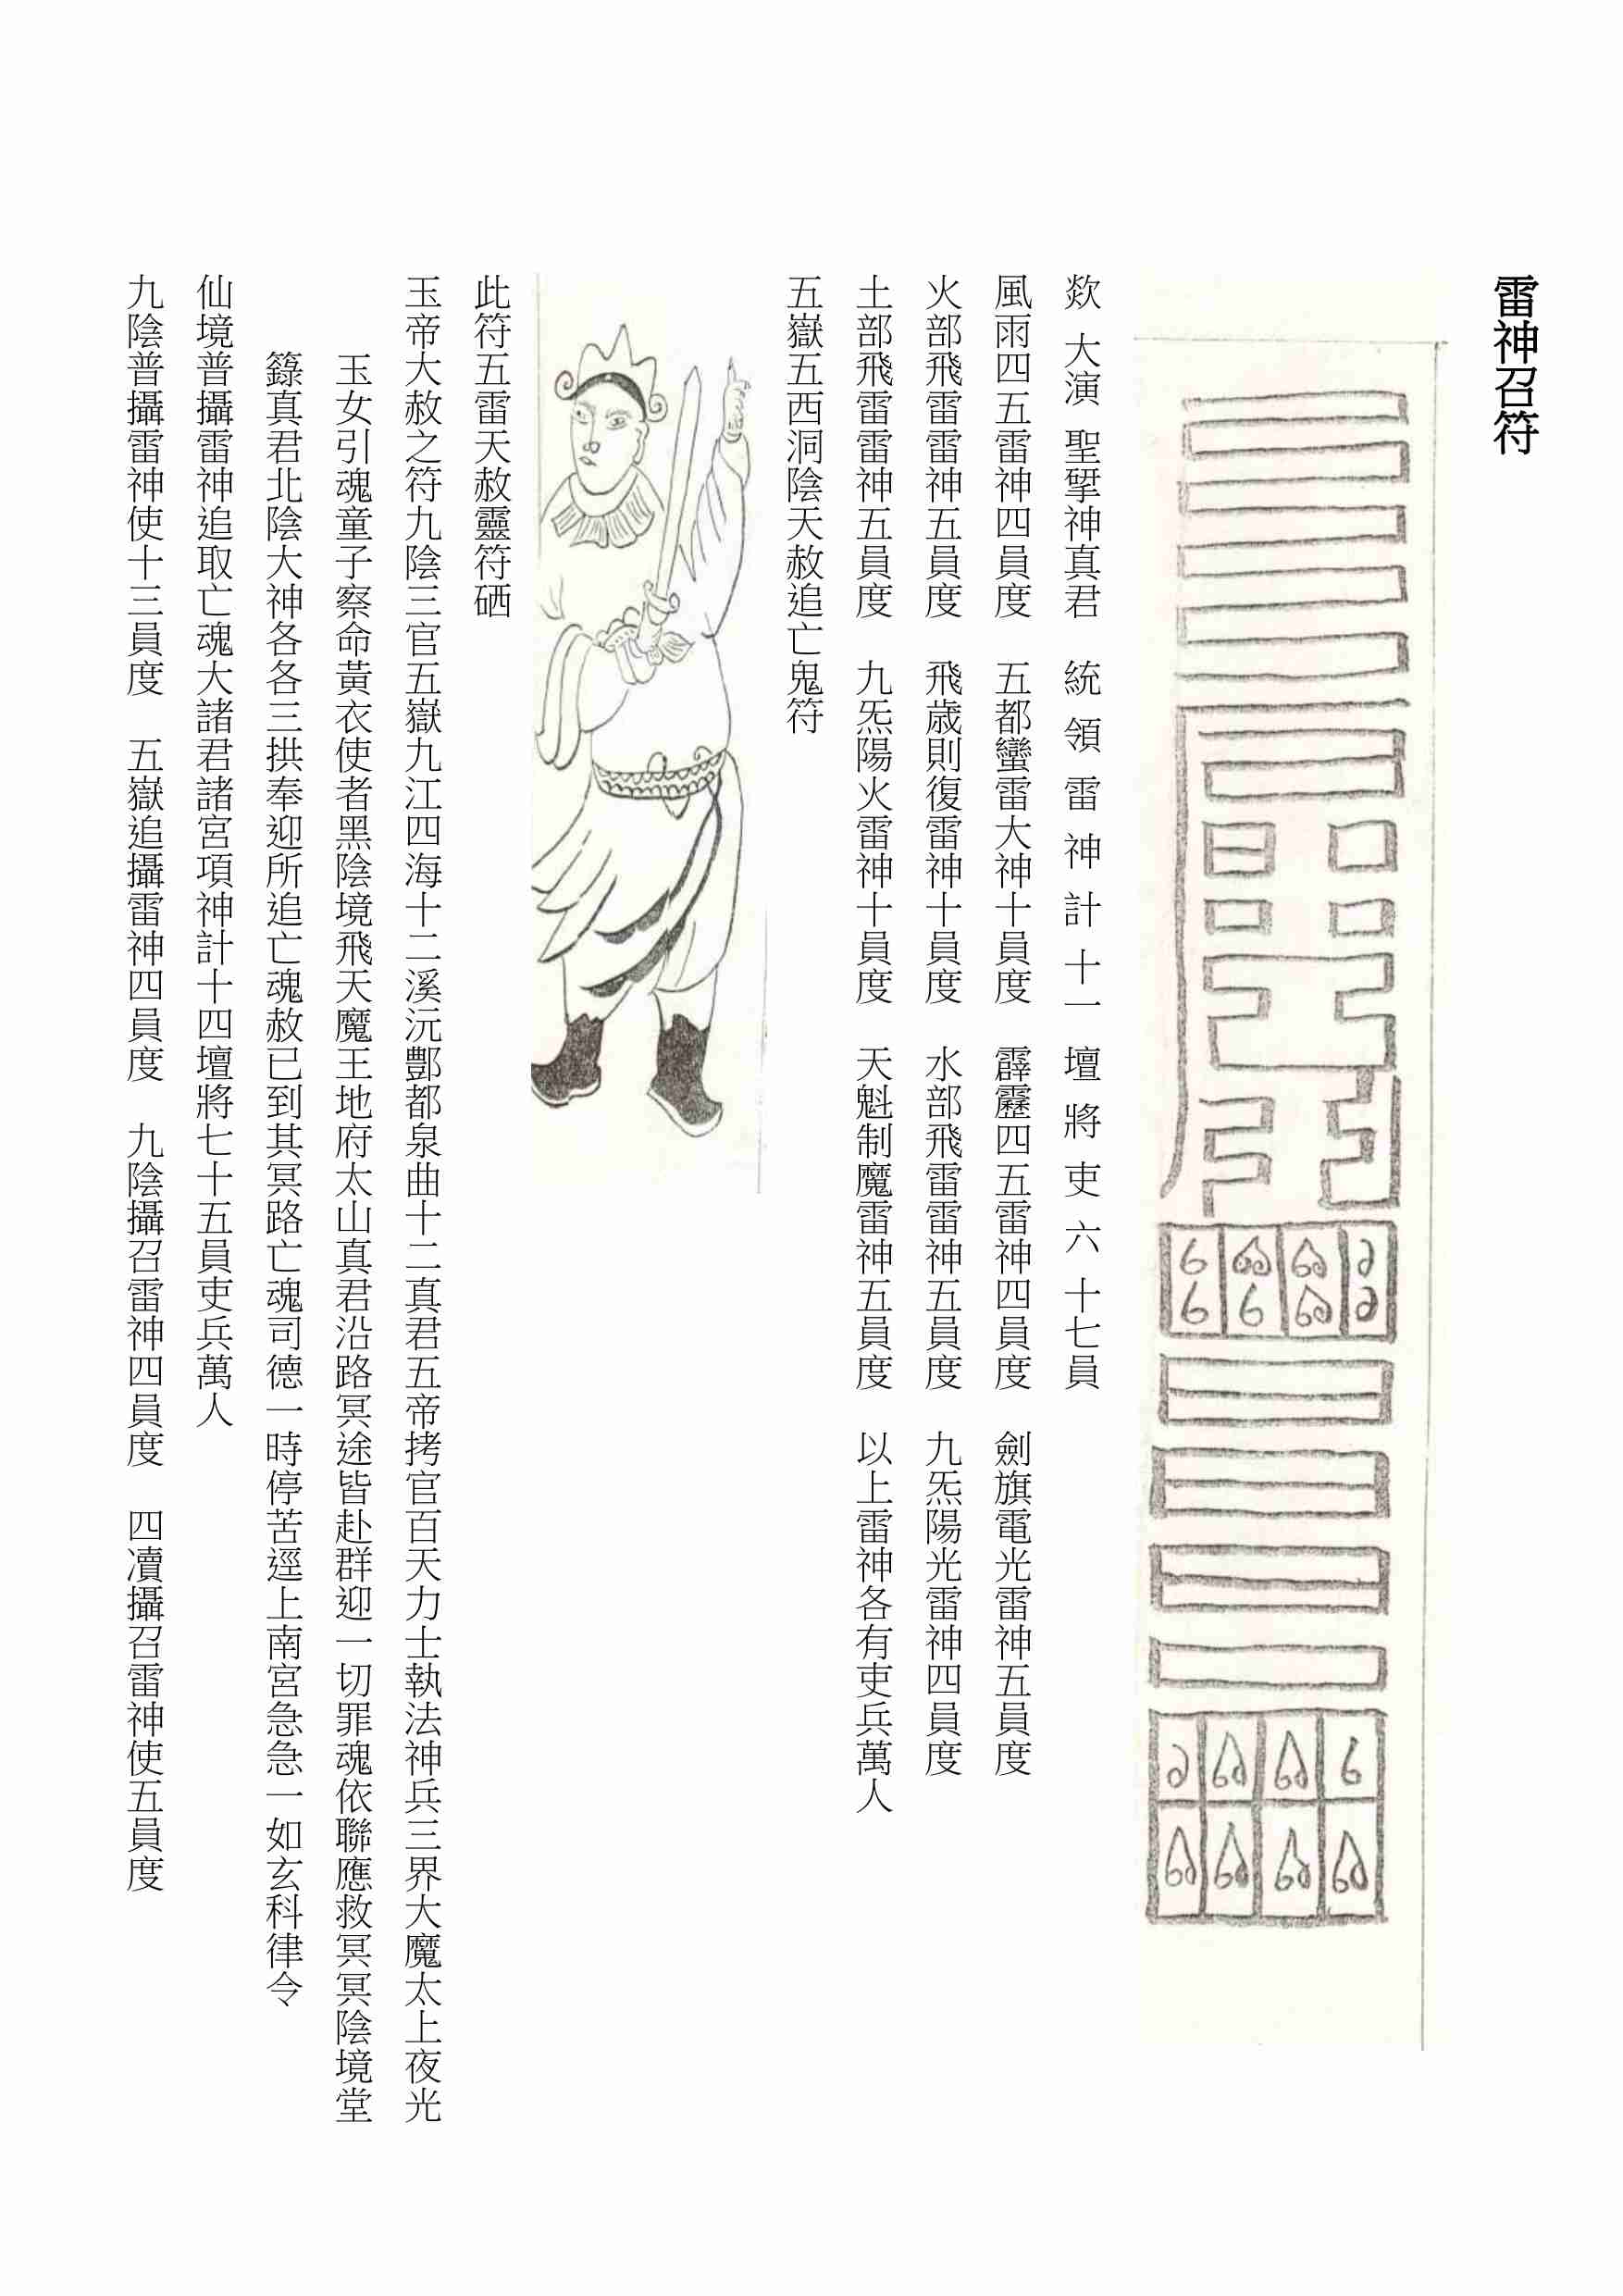 雷神召符
欻 大演 聖擥神真君 統 領 雷 神 計 十一 壇 將 吏 六 十七員
風雨四五雷神四員度 五都蠻雷大神十員度 霹靂四五雷神四員度 劍旗電光雷神五員度
火部飛雷雷神五員度 飛歳則復雷神十員度 水部飛雷雷神五員度 九炁陽光雷神四員度
土部飛雷雷神五員度 九炁陽火雷神十員度 天魁制魔雷神五員度 以上雷神各有吏兵萬人
五嶽五西洞陰天赦追亡鬼符
此符五雷天赦靈符硒
玉帝大赦之符九陰三官五嶽九江四海十二溪沅酆都泉曲十二真君五帝拷官百天力士執法神兵三界大魔太上夜光
玉女引魂童子察命黃衣使者黑陰境飛天魔王地府太山真君沿路冥途皆赴群迎一切罪魂依聯應救冥冥陰境堂
籙真君北陰大神各各三拱奉迎所追亡魂赦已到其冥路亡魂司德一時停苦逕上南宮急急一如玄科律令
仙境普攝雷神追取亡魂大諸君諸宮項神計十四壇將七十五員吏兵萬人
九陰普攝雷神使十三員度 五嶽追攝雷神四員度 九陰攝召雷神四員度 四凟攝召雷神使五員度